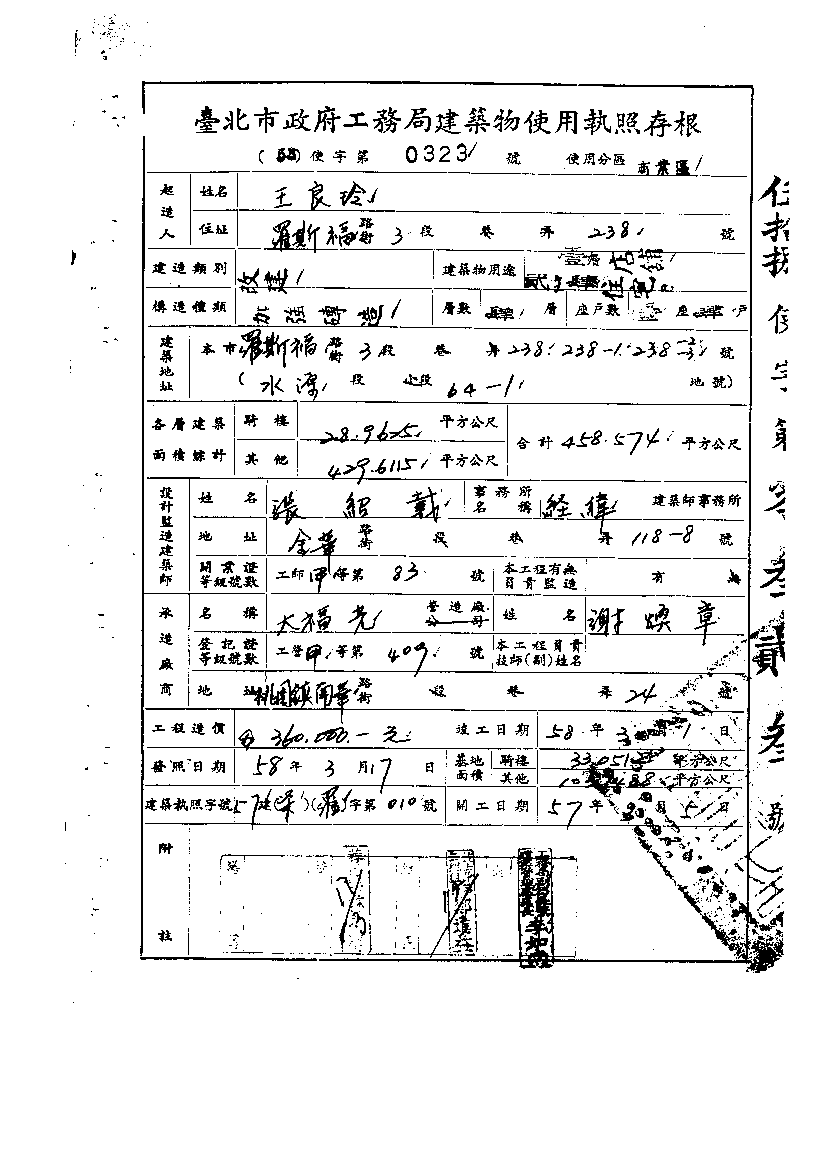 臺北市政府工務局建築物使用執照存根
使字第 0323 號 使用分區 商業區
起造人 姓名 王良玲
住址 羅斯福路街 3 段 巷 弄 238 號
建造類別 改建 建築物用途 店鋪 住宅
構造種類 加強磚造 層數 肆 層 座戶數 座 肆 戶
建築地址 本市羅斯福路街 3 段 巷 弄 238 238-1 238 號
(水源 段 小段 64-1 地號)
各層建築面積綜計 騎樓 28.9625 平方公尺 合計 458.574 平方公尺
其他 429.6115 平方公尺
設計監造建築師 姓名 張紹載 事務所名稱 經緯 建築師事務所
地址 金華路街 段 巷 弄 118-8 號
開業證等級號數 工師甲等第 83 號 本工程有無負責監造 有 無
承造廠商 名稱 大福光 營造廠公司 姓名 謝煥章
登記證等級號數 工營甲等第 409 號 本工程負責技師(副)姓名
地址 桃園鎮南華路街 段 巷 弄 24 號
工程造價 360.000.-元 竣工日期 58 年 3 月 1 日
發照日期 58 年 3 月 17 日 基地面積 騎樓 33.051 平方公尺
其他 平方公尺
建築執照字號 57建 (羅)字第 010 號 開工日期 57 年 月 5 日
附註
使字第零叁貳叁號